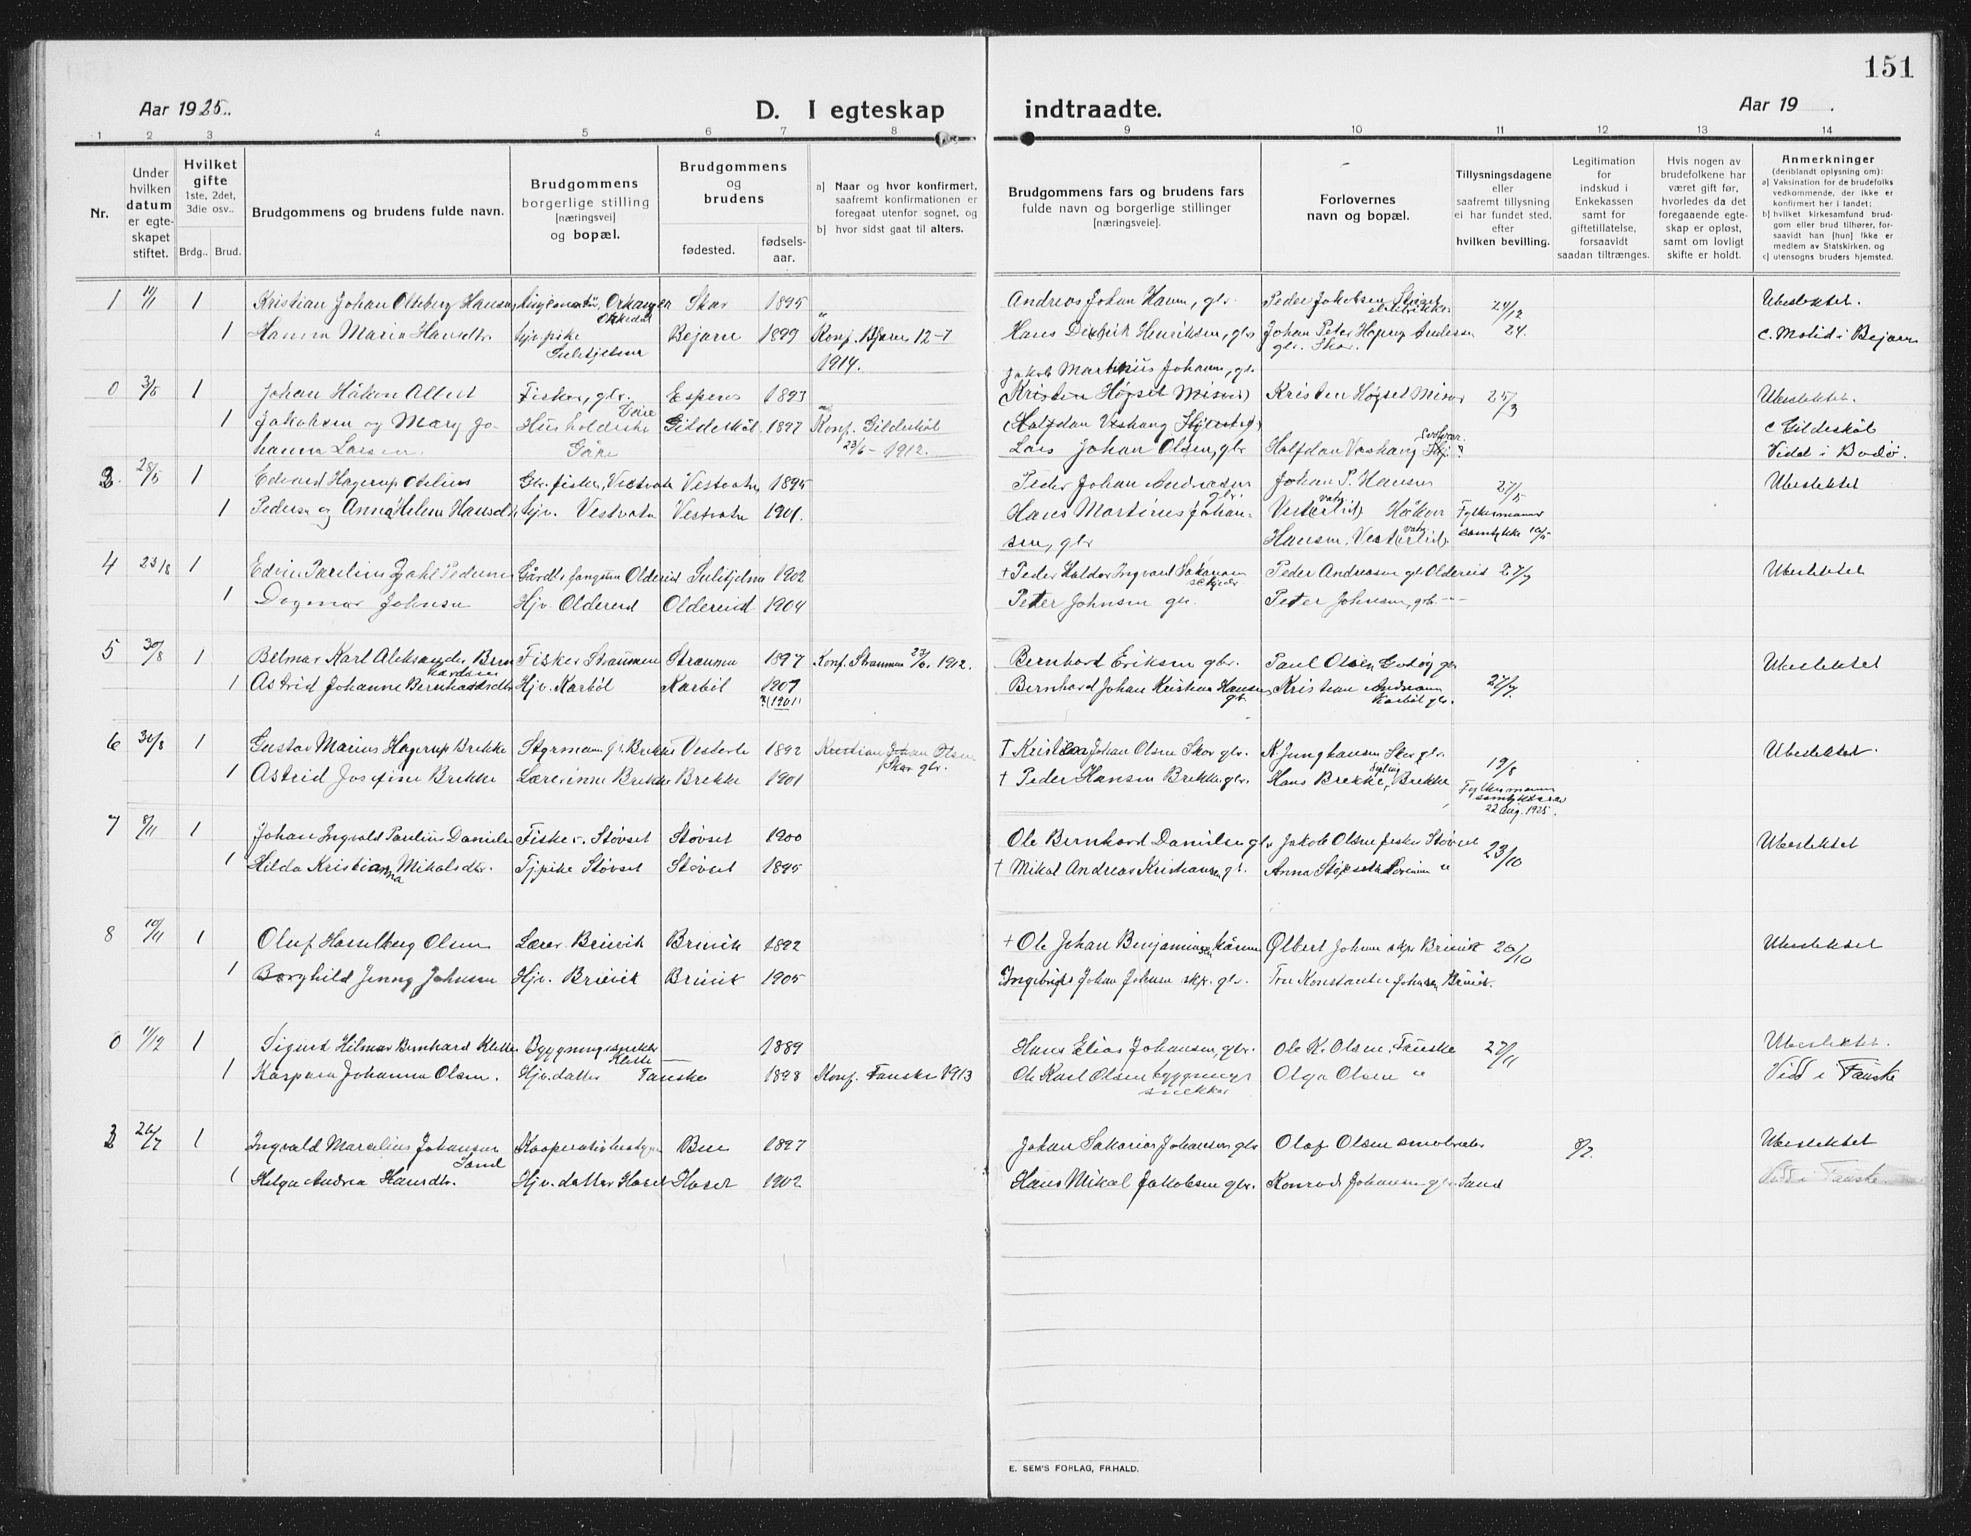 151
Aar 1925.
D. I egteskap indtraadte.
Aar 19 .
1 2 3 4 5 6 7 8 9 10 11 12 13 14
Nr.
Under hvilken datum er egteskapet stiftet.
Hvilket gifte
1ste, 2det, 3die osv..
Brdg.. Brud.
Brudgommens og brudens fulde navn.
Brudgommens borgerlige stilling [næringsvei] og bopæl.
Brudgommens og brudens
fødested.
fødselsaar.
a] Naar og hvor konfirmert, saafremt konfirmationen er foregaat utenfor sognet, og
b] hvor sidst gaat til alters.
Brudgommens fars og brudens fars fulde navn og borgerlige stillinger [næringsveie].
Forlovernes navn og bopæl.
Tillysningsdagene eller saafremt tillysning ei har fundet sted, efter hvilken bevilling.
Legitimation for indskud i Enkekassen samt for giftetillatelse, forsaavidt saadan tiltrænges.
Hvis nogen av brudefolkene har været gift før, hvorledes da det foregaaende egteskap er opløst, samt om lovligt skifte er holdt.
Anmerkninger (deriblandt oplysning om):
a] Vaksination for de brudefolks vedkommende, der ikke er konfirmert her i landet;
b] hvilket kirkesamfund brudgom eller brud tilhører, forsaavidt han [hun] ikke er medlem av Statskirken, og
c] utensogns bruders hjemsted.
1 11/1 1 Kristian Johan Oldeberg Hansen Skar 1895 Andreas Johan Hansen, gbr. Peder Jakobsen 24/12 Ubeslektet.
1 Hanna Marie Hansdtr Hjv. pike Sulitjelma Bejarn 1899 Konf. Bejarn 12-7 1914. Hans Didrik Henriksen, gbr Johan Peter Hagerup Andersen gbr. Skar. 24. c. Moldi i Bejarn
Jakob Martinius Johansen, gbr
0 3/5 1 Johan Håkon Albert Fisker, gbr. 1893 Kristen Høgset Misvær 25/3 Ubeslektet.
1 Jakobsen og Mary Jo- Husholderske Gildeskål 1897 Konf. Gildeskål c Gildeskål
hanna Larsen. 23/6 - 1912. Lars Johan Olsen, gbr Halfdan Vashaug Viet i Bodø.
3 28/5 1 Edvard Hagerup Odelius Gbr. fisker, Vestvatn Vestvatn 1895 Peder Johan Andreasen gbr. Johan P. Hansen 27/5 Ubeslektet
1 Pedersen og Anna Helene Hansdtr hjv. Vestvatn Vestvatn 1901. Hans Martinus Johan- Håkon Fylkesmannens
sen, gbr Hansen, samtykke
4 23/8 1 Edvin Parelius Dahl Pedersen Oldereid Sulitjelma 1902 + Peder Haldor Ingvart Peder Andreasen gbr Oldereid 27/7 Ubeslektet
1 Dagmar Johnsen Hjv. Oldereid Oldereid 1904 Peter Johnsen gbr. Peter Johnsen, gbr. --
5 30/8 1 Karl Aleksander Fisker Straumen Straumen 1897 Konf. Straumen 23/6. 1912. Bernhard Eriksen gbr. Paul Olsen Godøy gbr Ubeslektet
1 Astrid Johanne Bernhardsdtr Hjv. Karbøl Karbøl 1907 ?(1901) Bernhard Johan Kristian Hansen gbr. Kristian Andreasen Karbøl gbr. 27/7.
6 30/8 1 Gustav Marius Hagerup Brekke Styrmann gbr. Brekke 1892 Kristian Johan Olsen Skar gbr. † Kristian Johan Olsen Skar gbr. N Junghansen Skar gbr. Ubeslektet.
1 Astrid Josefine Brekke Lærerinne Brekke Brekke 1901 † Peder Hansen Brekke gbr. Hans Brekke, Brekke 19/8
Fylkesmannens samtykke av 22 Aug. 1925.
7 8/11 1 Johan Ingvald Paulius Danielsen Fisker. Støvset Støvset 1900 Ole Bernhard Danielsen gbr Jakob Olsen fisker Støvset 23/10 Ubeslektet
1 Hilda Kristianna Mikalsdtr. Tjpike Støvset Støvset 1895 † Mikal Andreas Kristiansen gbr. Anna
8 10/11 1 Oluf Hasselberg Olsen Lærer. Breivik Breivik 1892 + Ole Johan Benjaminsen Ølbert Johnsen skpr Breivik 20/10 Ubeslektet
1 Borghild Jenny Johnsen Hjv. Breivik Breivik 1905 Ingebrigt Johan Johnsen skpr. gbr. Konstantin Johnsen Breivik.
0 11/12 1 Sigurd Hilmar Bernhard Klette Bygningssnekker Klette — 1889 Hans Elias Johansen, gbr. Ole K. Olsen, Fauske 27/11 Ubeslektet.
1 Kaspara Johanna Olsen. Hjv. datter Fauske 1898 Konf. Fauske 1913 Ole Karl Olsen bygnings snekker Olga Olsen " Vidd i Fauske
3 26/7 1 Ingvald Marelius Johansen Sand 1897 Johan Sakarias Johansen gbr Olaf Olsen 8/7. Ubeslektet
1 Helga Andrea Hansdtr. Hjv. datter Koset Koset 1902 Hans Mikal Jakobsen gbr. Konrad Johansen gbr. Sand Vidd i Fauske
E. SEM'S FORLAG, FR.HALD.